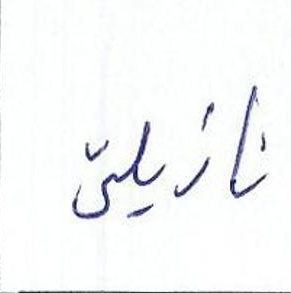 نازیلّی